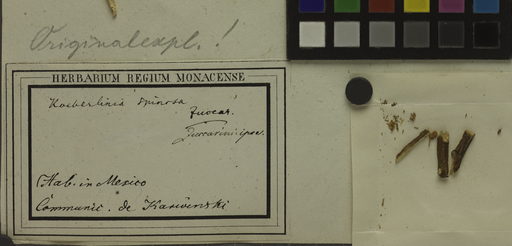 Originalexpl. !
HERBARIUM REGIUM MONACENSE
Koeberlinia spinosa
Zuccar.
Zuccarini ipse.
Hab. in Mexico
Communic. de Karwinski